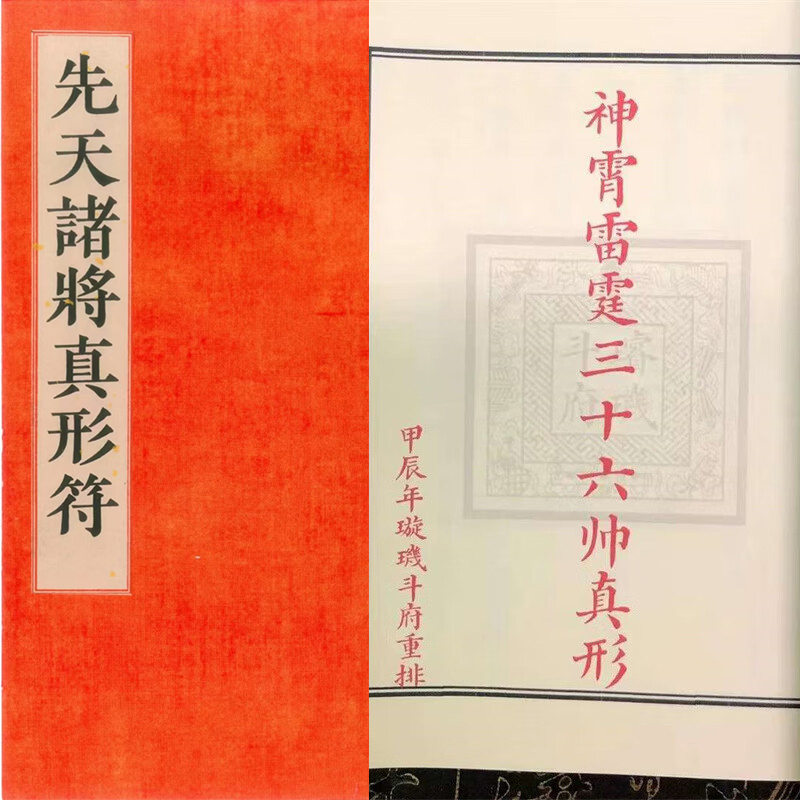 先天諸將真形符
神霄雷霆三十六帅真形
甲辰年璇璣斗府重排
睿璣
斗府